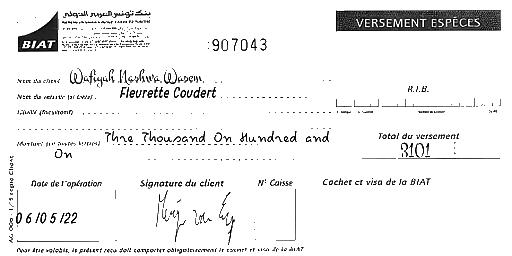 بنك تونس العربي الدولي
BIAT
VERSEMENT ESPÈCES
907043
Nom du client Wafiyah Nashwa Wasem
Fleurette Coudert
R.I.B.
Montant (en toutes lettres) Thre Thousand On Hundred and
On
Total du versement
3101
Date de l'opération
Signature du client
N° Caisse
Cachet et visa de la BIAT
06/05/22
Pour être valable, le présent reçu doit comporter obligatoirement le cachet et visa de la BIAT